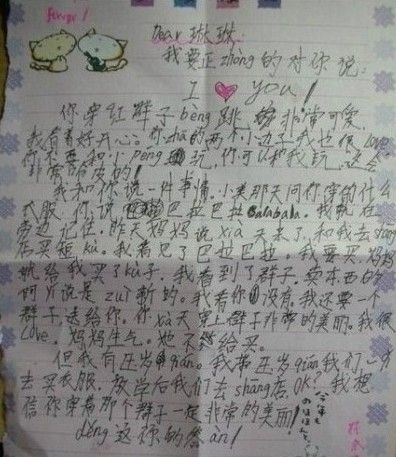 forever!
Dear 琳琳:
我要正zhòng的对你说:
I ♥ you!
你穿红群子bèng跳,非常可爱,
我看着好开心。你zhā的两个小边子我也很Love
你不要和小péng玩,你可以和我玩,这会
非常合皮的!
我和你说一件事情,小美那天问你穿的什么
衣服,你说巴拉巴拉Balabala。我就在
旁边记住,昨天妈妈说xià天来了,和我去shāng
店买短kù。我看见了巴拉巴拉。我要买妈妈
就给我买了kù子。我看到了群子。卖东西的
阿yí说是zuì新的。我看你没有。我还要一个
群子送给你,你xià天穿上群子非常的美丽。我很
Love。妈妈生气。她不给买。
但我有压岁qián。我带压岁qián我们一切
去买衣服,放学后我们去shāng店OK?我想
信你穿着那个群子一定非常的美丽!
děng这你的答àn!
今年も
のほほんと